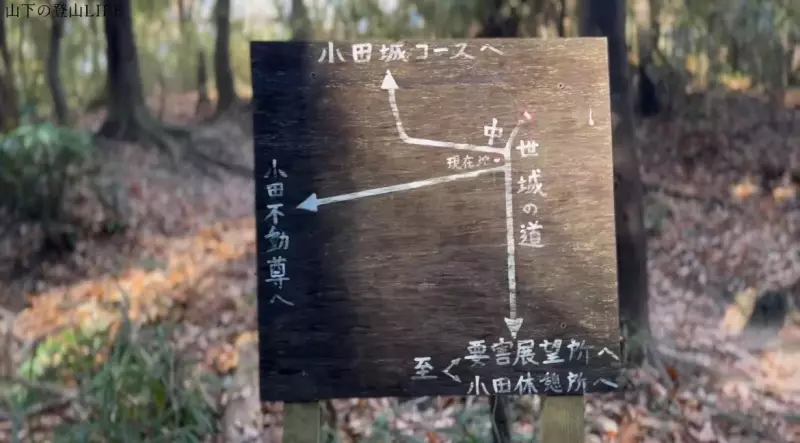 山下の登山LIFE
小田城コースへ
中世城の道
現在地
小田不動尊へ
至
要害展望所へ
小田休憩所へ